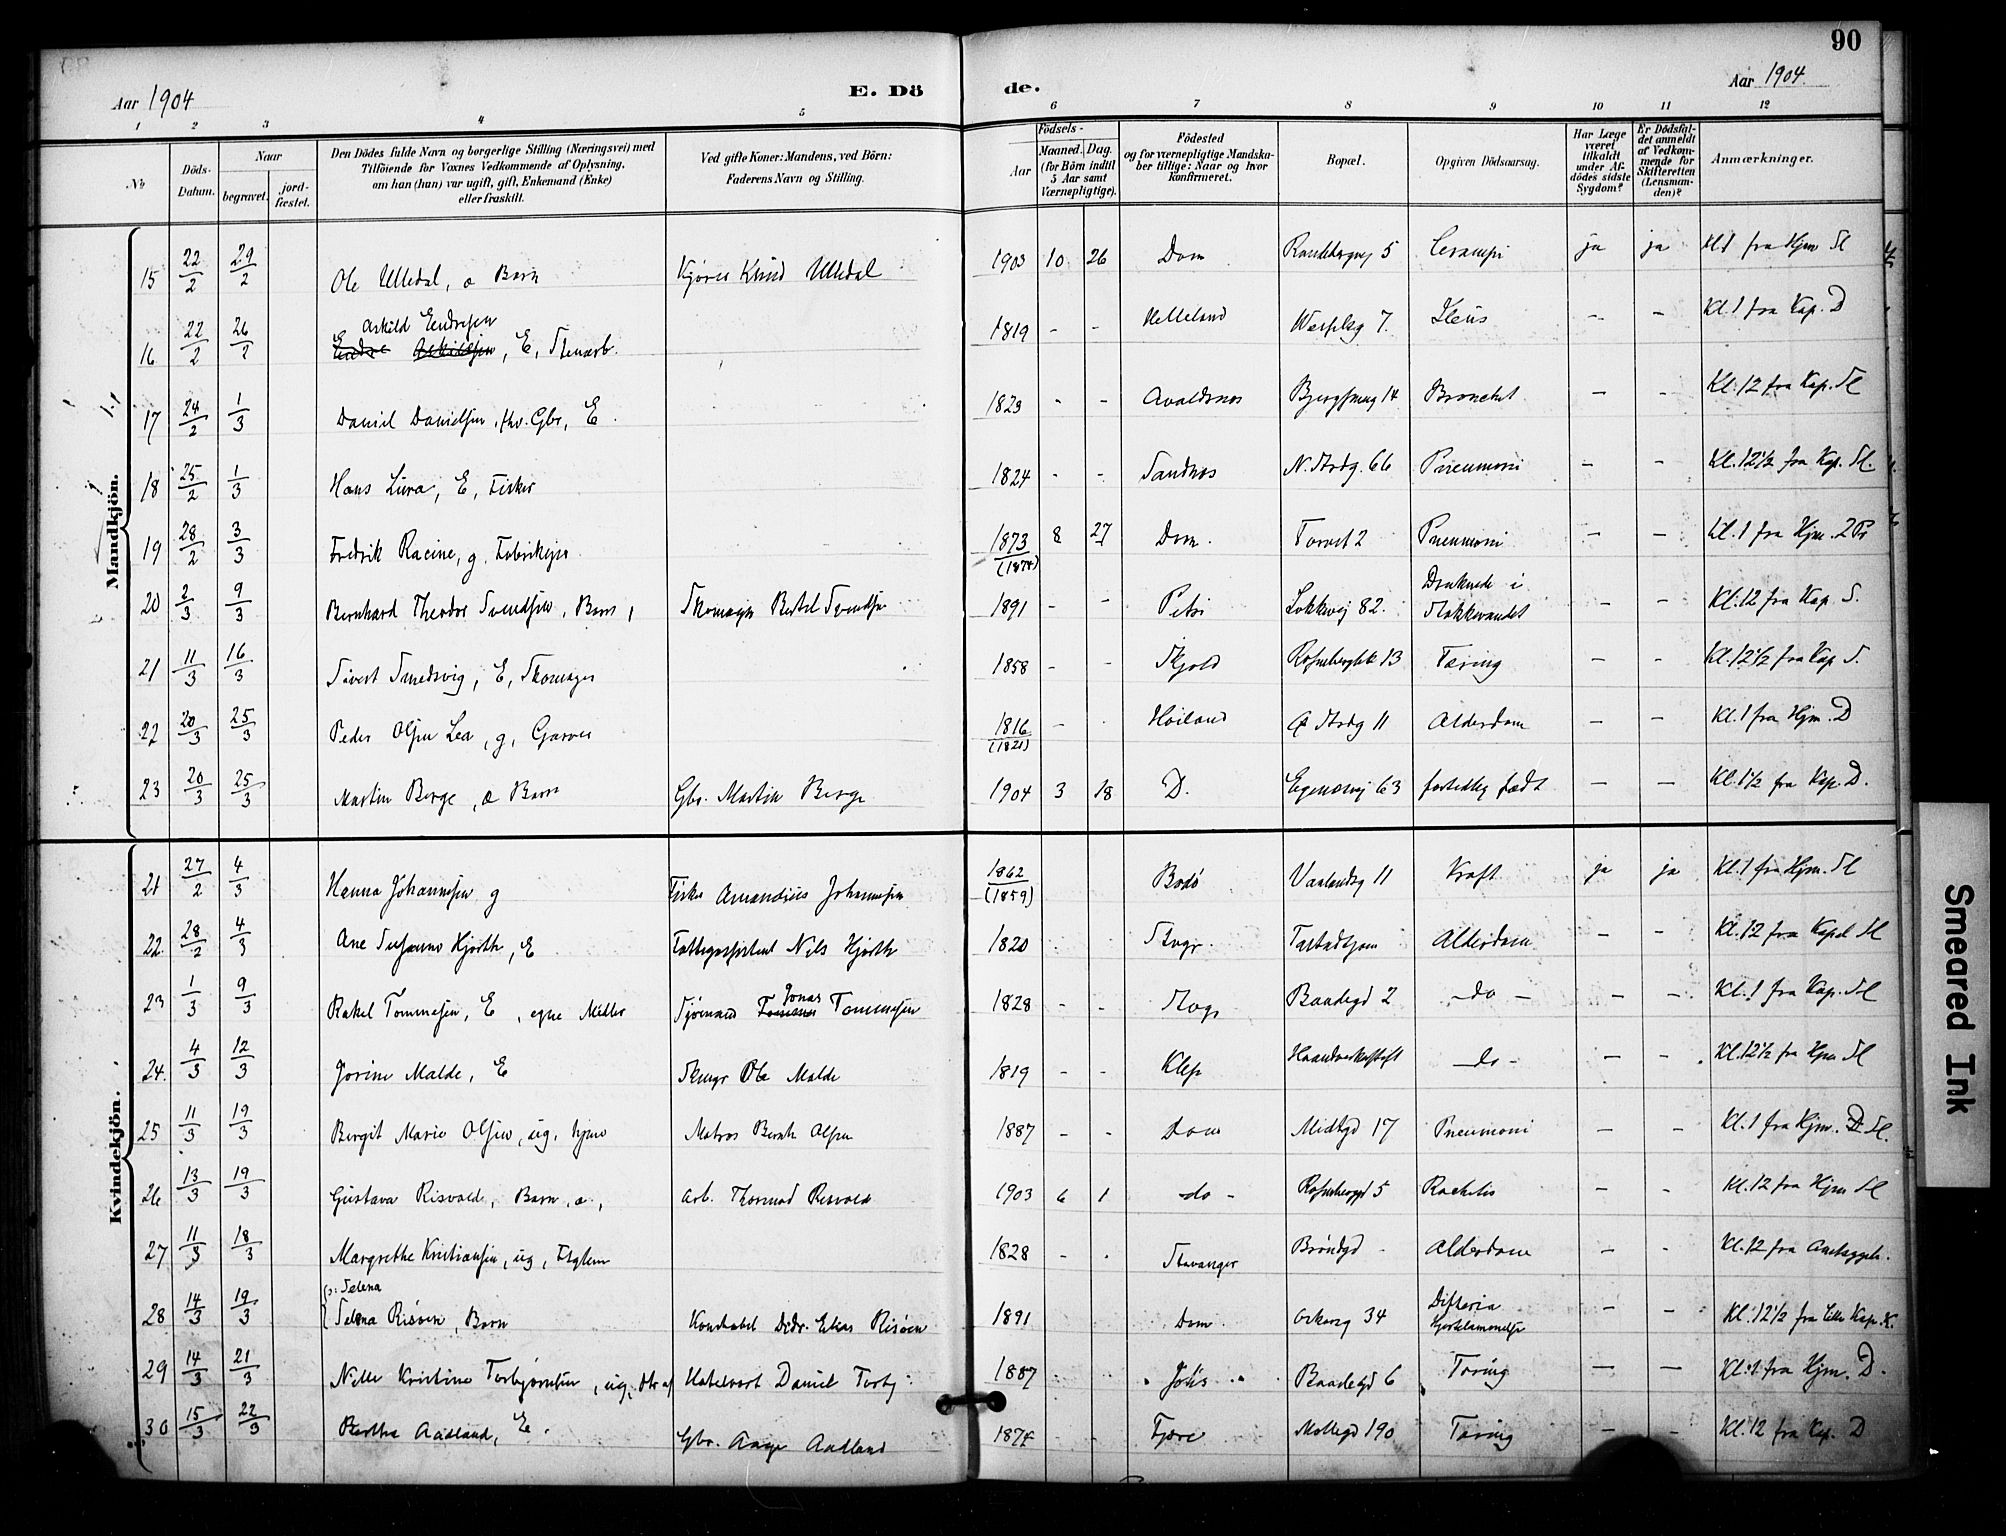 90
Aar 1904
E. Dö
de.
Aar 1904
1 2 3 4 5 6 7 8 9 10 11 12
No
Döds-Datum.
Naar
begravet.
jord-fæstet.
Den Dödes fulde Navn og borgerlige Stilling (Næringsvei) med
Tilföiende for Voxnes Vedkommende af Oplysning,
om han (hun) var ugift, gift, Enkemand (Enke)
eller fraskilt.
Ved gifte Koner: Mandens, ved Börn:
Faderens Navn og Stilling.
Födsels-
Aar
Maaned. Dag.
(for Börn indtil
5 Aar samt
Værnepligtige).
Födested
og for værnepligtige Mandska-
ber tillige: Naar og hvor
konfirmeret.
Bopæl.
Opgiven Dödsaarsag.
Har Læge
været
tilkaldt
under Af-
dödes sidste
Sygdom?
Er Dödsfal-
det anmeldt
af Vedkom-
mende for
Skifteretten
(Lensman-
den)?
Anmærkninger.
Mandkjön.
15 22/2 29/2 Ole Ulledal, æ Barn Kjører Knud Ulledal 1903 10 26 Dom 5 ja ja fra Hjm St
16 22/2 26/2 Askild Endresen
Endre Askildsen, E, Stenarb. 1819 - - Helleland 7. Ileus - - Kl. 1 fra Kap. D
17 24/2 1/3 Daniel Danielsen, fhv. Gbr, E 1823 - - Avaldsnes 14 Bronchit - - Kl. 12 fra Kap. St
18 25/2 1/3 Hans Lura, E, Fisker 1824 - - Sandnes N. Strdg. 66 Pneumoni - - Kl. 12½ fra Kap. St.
19 28/2 3/3 Fredrik Racine, g. 1873
(1874) 8 27 Dom. Torvet 2 Pneumoni - - Kl. 1 fra Hjm. 2 Pr
20 2/3 9/3 Bernhard Theodor Svendsen, Barn, Skomager Bertel Svendsen 1891 - - Petri Lokkevej 82. Druknede i
Stokkevandet - - Kl. 12 fra Kap. S.
21 11/3 16/3 Sivert Smedsvig, E, Skomager 1858 - - Skjold 13 Tæring - - Kl. 12½ fra Kap S.
22 20/3 25/3 Peder Olsen Lea, g, Garver 1816
(1821) - Høiland Ø Strdg 11 Alderdom - - Kl. 1 fra Hjm. D
23 20/3 25/3 Martin Berge, æ Barn Gbr. Martin Berge 1904 3 18 D. Egenesvej 63 fortidlig født - - Kl. 1½ fra Kap. D.
Kvindekjön.
21 27/2 4/3 Hanna Johannesen g Fisker Amandius Johannesen 1862
(1859) Bodø Vaalandsg 11 Kræft ja ja Kl. 1 fra Hjm. St
22. 28/2 4/3 Ane Susanne Hjorth, E Nils Hjorth 1820 Stvgr. Alderdom - - Kl. 12 fra Kapel St
23 1/3 9/3 Rakel Tommesen, E, egne Midler Sjømand Jonas Tommesen 1828 - - Baadegd 2 - do - - - Kl. 1 fra Kap. St
24. 4/3 12/3 Jorine Malde, E Ole Malde 1819 - - Klep - do - - - Kl. 12½ fra Hjm St
25 11/3 19/3 Birgit Marie Olsen, ug. hjme Matros Bernh Olsen 1887 - - Dom Midtgd 17 Pneumoni - - Kl. 1 fra Hjm. D St.
26 13/3 19/3 Gustava Risvold, Barn, æ, Arb. Thormod Risvold 1903 6 1 - do - 5 Rachitis - - Kl. 12 fra Hjm St
27 11/3 18/3 Margrethe Kristiansen, ug, 1828 - Stavanger Brøndgd Alderdom - - Kl. 12 fra
28 14/3 19/3 (ɔ: Selena
Selena Risøen, Barn Konstabel Elias Risøen 1891 Dom 34 Difteria
Hjertelammelse - - Kl. 12½ fra lille Kap. K.
29 14/3 21/3 Nille Kristine Torbjørnsen, ug. Daniel Torbj 1887 Joh's Baadegd 6 Tæring - - Kl. 1 fra Hjm. D.
30 15/3 22/3 Bertha Aadland, E. Gbr. Aage Aadland 1874 - - Møllegd 190 Tæring - - Kl. 12 fra Kap. D
Smeared Ink